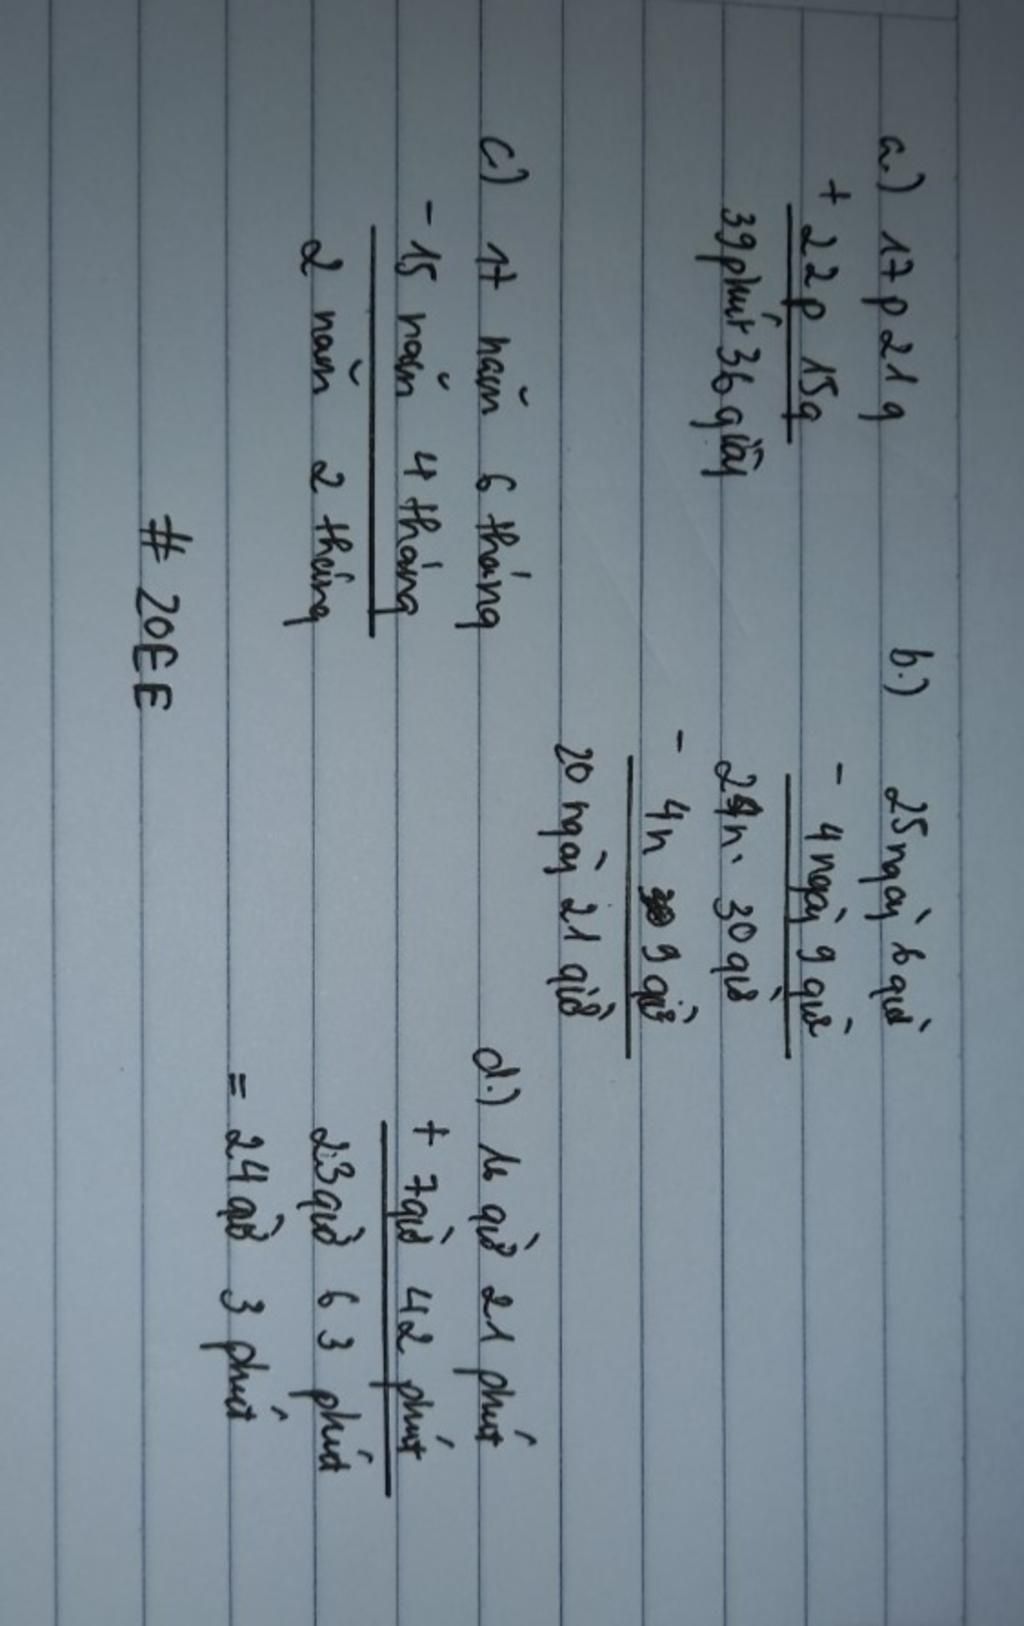 a.) 17 p 21 g
+ 22 p 15g
39 phút 36 giây
b.) 25 ngày 6 giờ
- 4 ngày 9 giờ
24n. 30 giờ
- 4n 9 giờ
20 ngày 21 giờ
c) 17 năm 6 tháng
- 15 năm 4 tháng
2 năm 2 tháng
d.) 16 giờ 21 phút
+ 7giờ 42 phút
23giờ 63 phút
= 24 giờ 3 phút
# 20EE